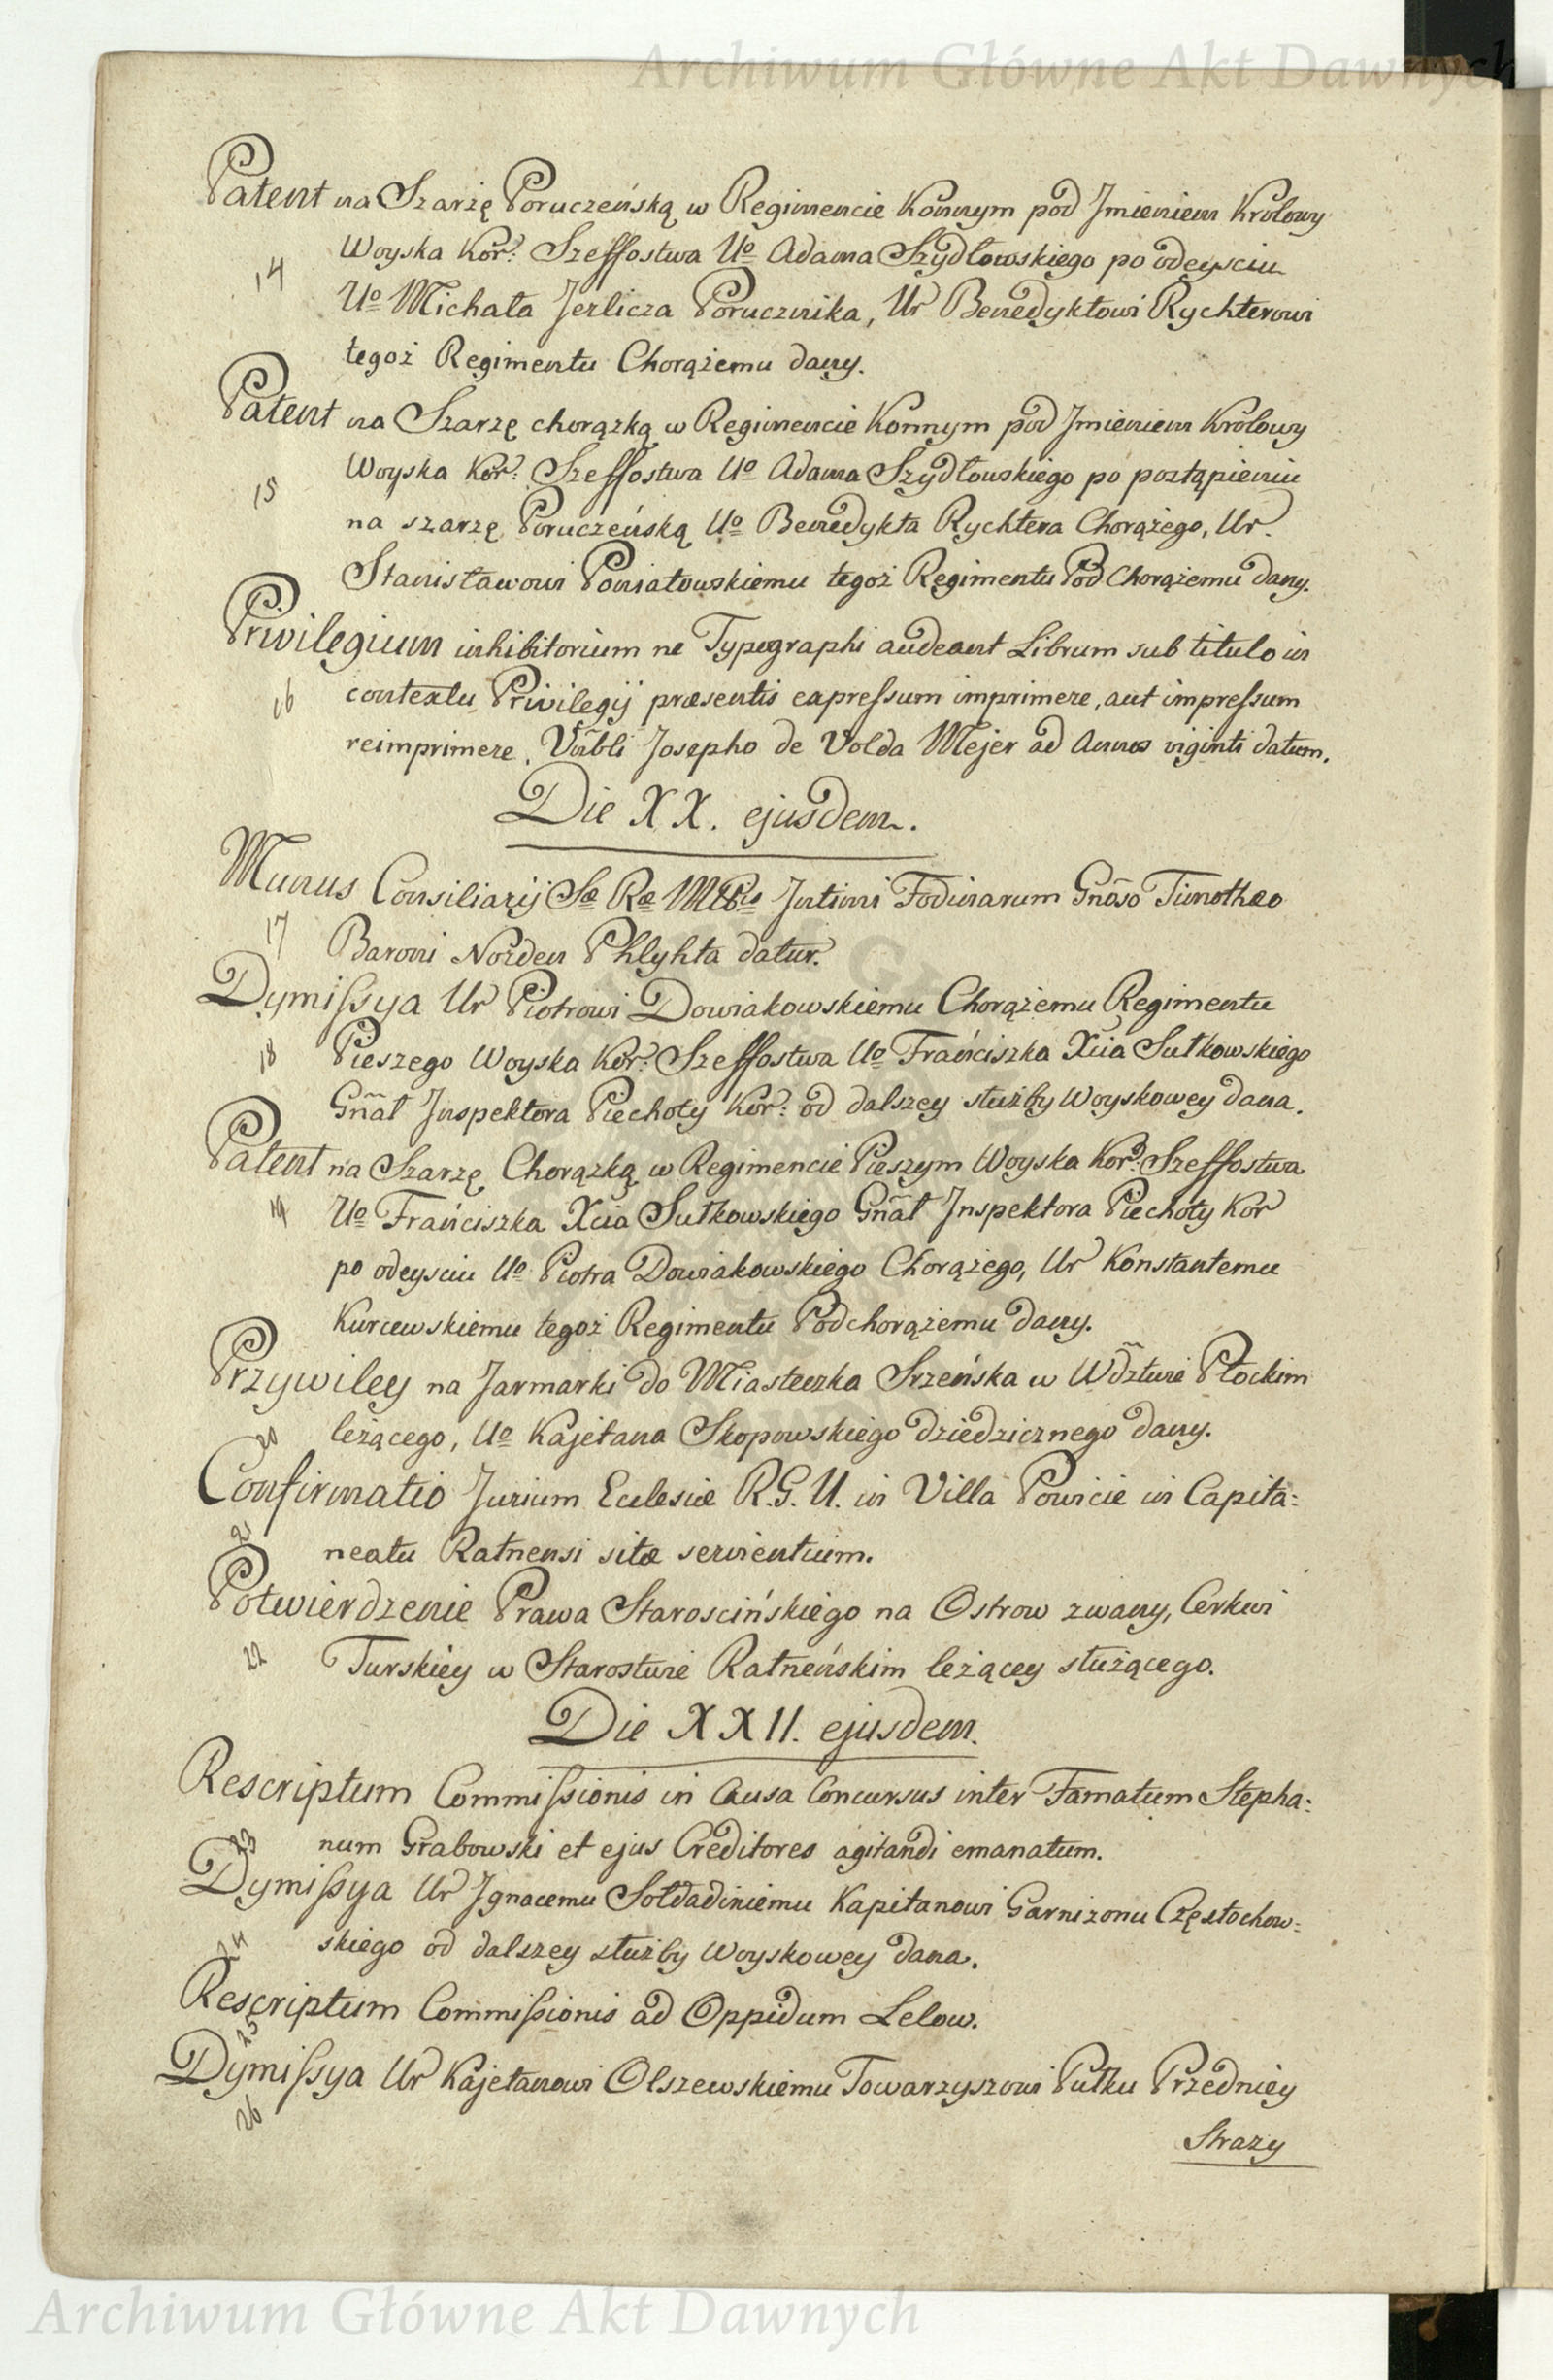 Archiwum Główne Akt Dawnych
Patent na Szarżę Poruczeńską w Regimencie Konnym pod Jmieniem Krolowy
Woyska Kor: Szeffostwa Uo Adama Szydłowskiego po odeysciu
14
Uo Michała Jerlicza Porucznika, Ur Benedyktowi Rychterowi
tegoż Regimentu Chorążemu dany.
Patent na Szarzę chorązką w Regimencie Konnym pod Jmieniem Krolowy
Woyska Kor: Szeffostwa Uo Adama Szydłowskiego po postąpieniu
15
na szarzę Poruczeńską Uo Benedykta Rychtera Chorążego, Ur.
Stanisławowi Poniatowskiemu tegoż Regimentu Pod Chorążemu dany.
Privilegium inhibitorium ne Typographi audeant Librum sub titulo in
16
contextu Privilegij præsentis expressum imprimere, aut impressum
reimprimere, Vnbli Josepho de Volda Mejer ad Annos viginti datum.
Die XX. ejusdem.
Munus Consiliarij Sæ Ræ Mttis Intimi Fodinarum Gnoso Timotheo
17
Baroni Norden Phlyhta datur.
Dymissya Ur Piotrowi Dowiakowskiemu Chorążemu Regimentu
18
Pieszego Woyska Kor: Szeffostwa Uo Franciszka Xcia Sułkowskiego
Gnał Jnspektora Piechoty Kor: od dalszey służby Woyskowey dana.
Patent na Szarzę Chorązką w Regimencie Pieszym Woyska Kor: Szeffostwa
19
Uo Franciszka Xcia Sułkowskiego Gnał Jnspektora Piechoty Kor
po odeysciu Uo Piotra Dowiakowskiego Chorążego, Ur Konstantemu
Kurcewskiemu tegoż Regimentu Podchorążemu dany.
Przywiley na Jarmarki do Miasteczka Srzeńska w Wdztwie Płockim
20
leżącego, Uo Kajetana Skopowskiego dziedzicznego dany.
Confirmatio Jurium Eclesiæ R.G.U. in Villa Powicie in Capita:
21
neatu Ratnensi sitæ servientium.
Potwierdzenie Prawa Staroscińskiego na Ostrow zwany, Cerkwi
22
Turskiey w Starostwie Ratneńskim leżącey służącego.
Die XXII. ejusdem.
Rescriptum Commissionis in Causa Concursus inter Famatum Stepha:
23
num Grabowski et ejus Creditores agitandi emanatum.
Dymissya Ur Jgnacemu Sołdadiniemu Kapitanowi Garnizonu Częstochow:
24
skiego od dalszey służby Woyskowey dana.
Rescriptum Commissionis ad Oppidum Lelow.
25
Dymissya Ur Kajetanowi Olszewskiemu Towarzyszowi Pułku Przedniey
26
Strazy
Archiwum Główne Akt Dawnych